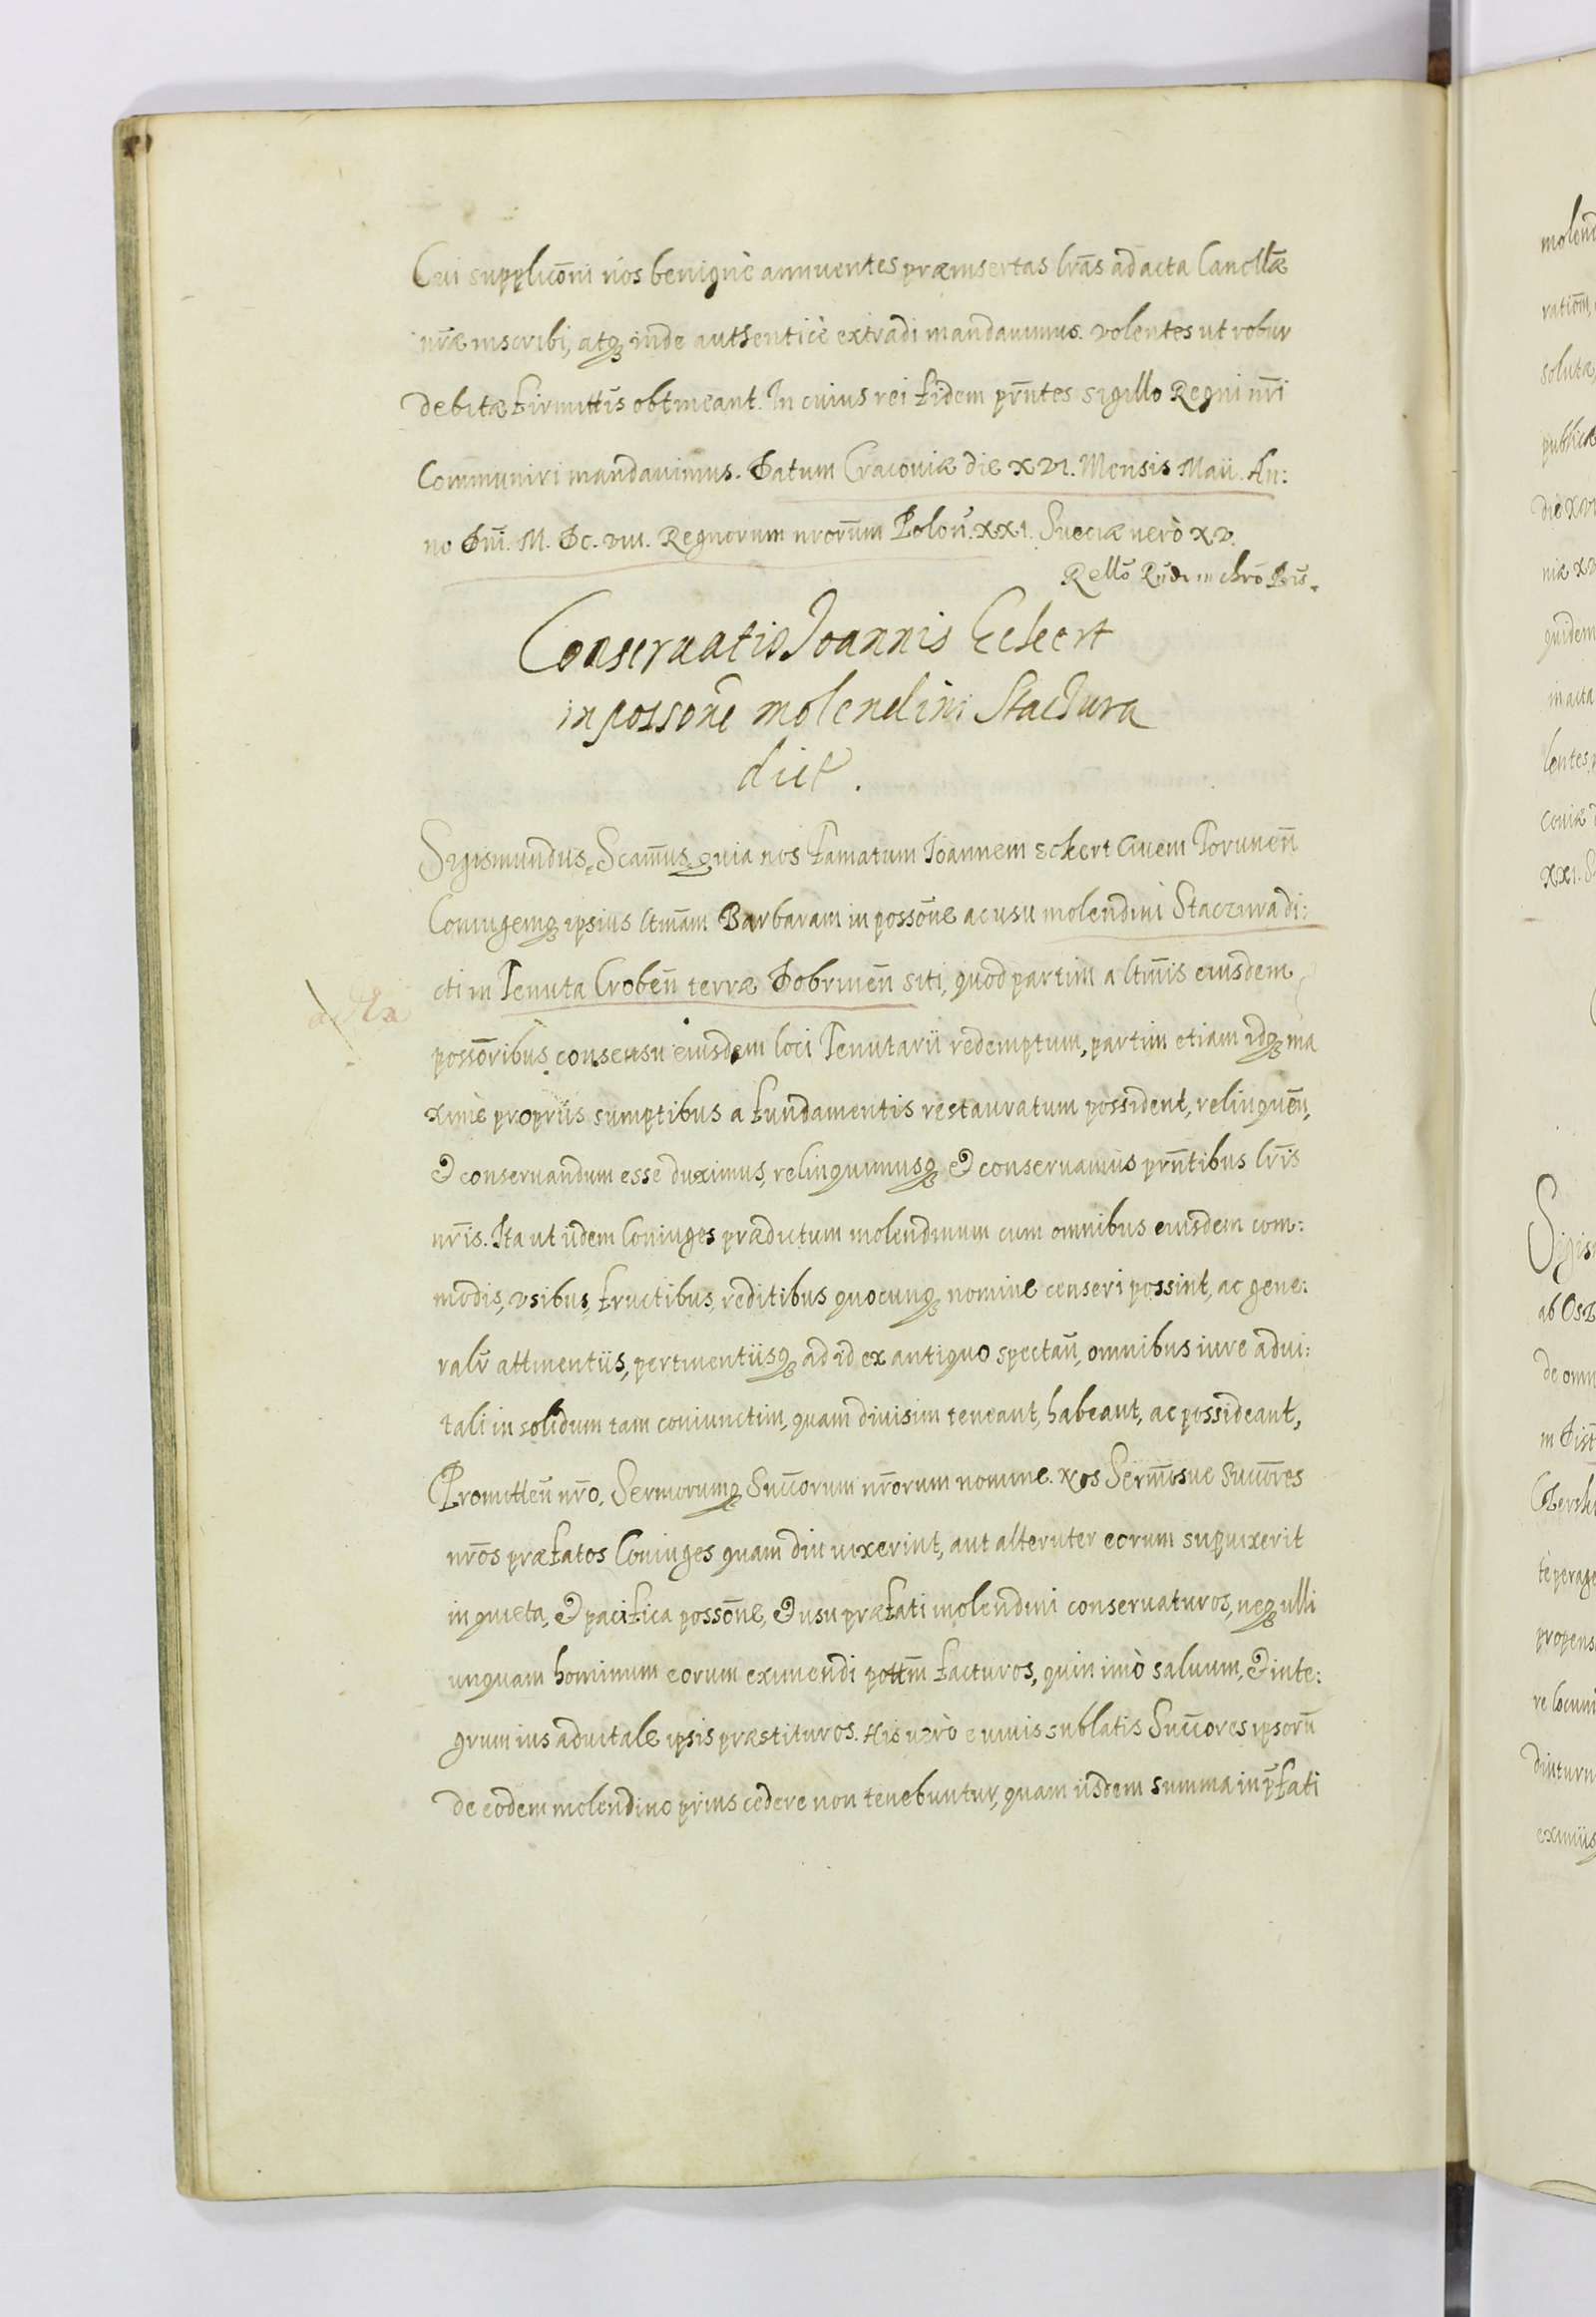 Cui supplicōni nos benignè annuentes præinsertas lrās ad acta Cancllæ
nr̄æ inscribi, atq3 inde authenticè extradi mandauimus. volentes ut robur
debitæ firmittīs obtineant. In cuius rei fidem prn̄tes sigillo Regni nr̄i
Communiri mandauimus. Datum Cracoviæ die XVI. Mensis Maii. An:
no Dn̄i. M. DC. VIII. Regnorum nrorūm Polon̄. XXI. Sueciæ verò XV.
Rellō Rn̄di in chrō Pris.
Conseruatio Joannis Eckert
in possōne molendini Staczura
dict.
Sigismundus, Scām̄us, quia nos Famatum Joannem Eckert Ciuem Torunen̄
Coniugemq3 ipsius ltm̄am Barbaram in possōne ac usu molendini Staczura di:
cti in Tenuta Croben̄ terræ Dobrinen̄ siti, quod partim a ltm̄is eiusdem
possōribus consensu eiusdem loci Tenutarii redemptum, partim etiam idq3 ma
ximè propriis sumptibus a fundamentis restauratum possident, relinquēn,
& conseruandum esse duximus, relinquimusq3 & conseruamus prn̄tibus lr̄is
nr̄is. Ita ut iidem Coniuges prædictum molendinum cum omnibus eiusdem com:
modis, vsibus, fructibus, reditibus quocunq3 nomine censeri possint, ac gene:
ralr̄ attinentiis, pertinentiisq3 ad id ex antiquo spectan̄, omnibus iure adui:
tali in solidum tam coniunctim, quam diuisim teneant, habeant, ac possideant,
Promitten̄ nr̄o, Sermorumq3 Succ̄orum nr̄orum nomine. Nos Serm̄osue Succ̄ores
nr̄os præfatos Coniuges quam diu uixerint, aut alteruter eorum supuixerit
in quieta, & pacifica possōne, & usu præfati molendini conseruaturos, neq3 ulli
unquam hominum eorum eximendi pottm̄ facturos, quin imò saluum, & inte:
grum ius aduitale ipsis præstituros. His verò e uiuis sublatis Succ̄ores ipsorū
de eodem molendino prius cedere non tenebuntur, quam iisdem summa in p̄fati